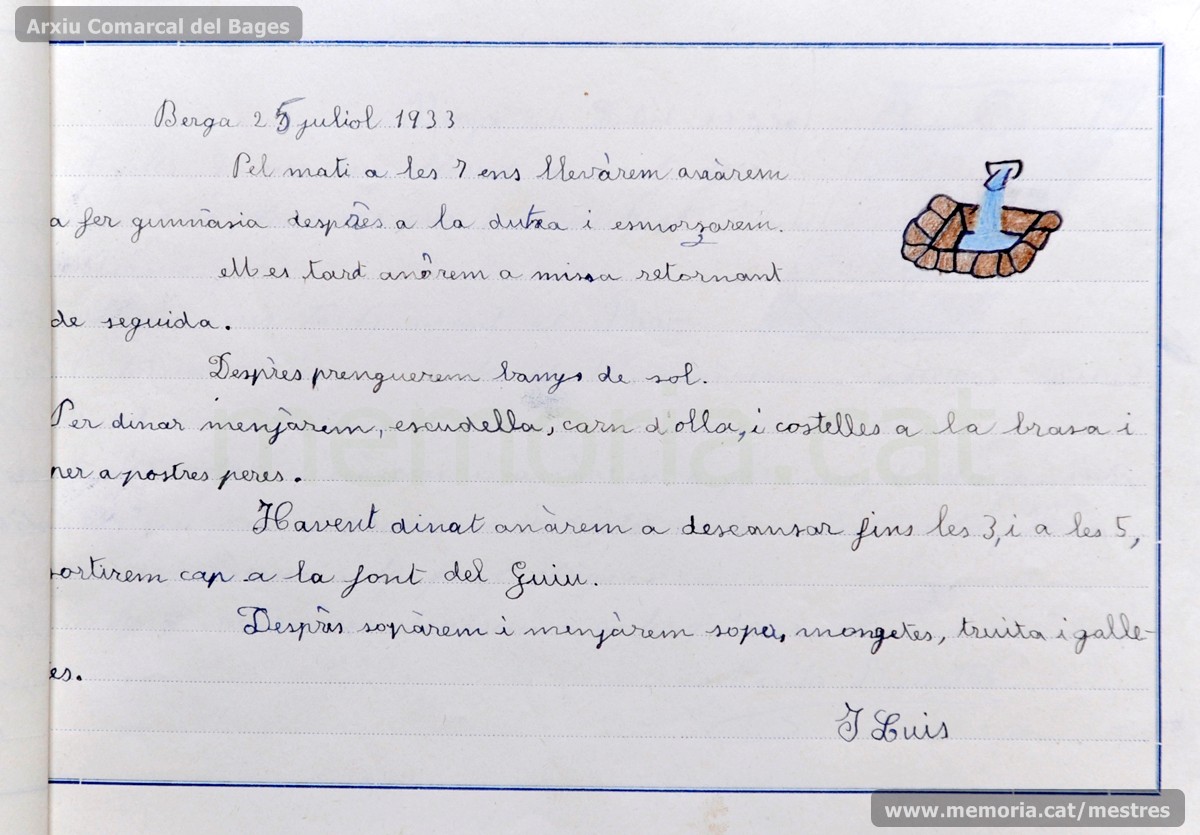 Arxiu Comarcal del Bages
Berga 25 juliol 1933
Pel mati a les 7 ens llevàrem anàrem
a fer gimnàsia desprès a la dutxa i esmorzarem.
Mes tard anàrem a missa retornant
de seguida.
Desprès prenguerem banys de sol.
Per dinar menjàrem, escudella, carn d olla, i costelles a la brasa i
per a postres peres.
Havent dinat anàrem a descansar fins les 3, i a les 5,
sortirem cap a la font del Guiu.
Desprès sopàrem i menjàrem sopa, mongetes, truita i galle-
tes.
J Luis
memoria.cat
www.memoria.cat/mestres